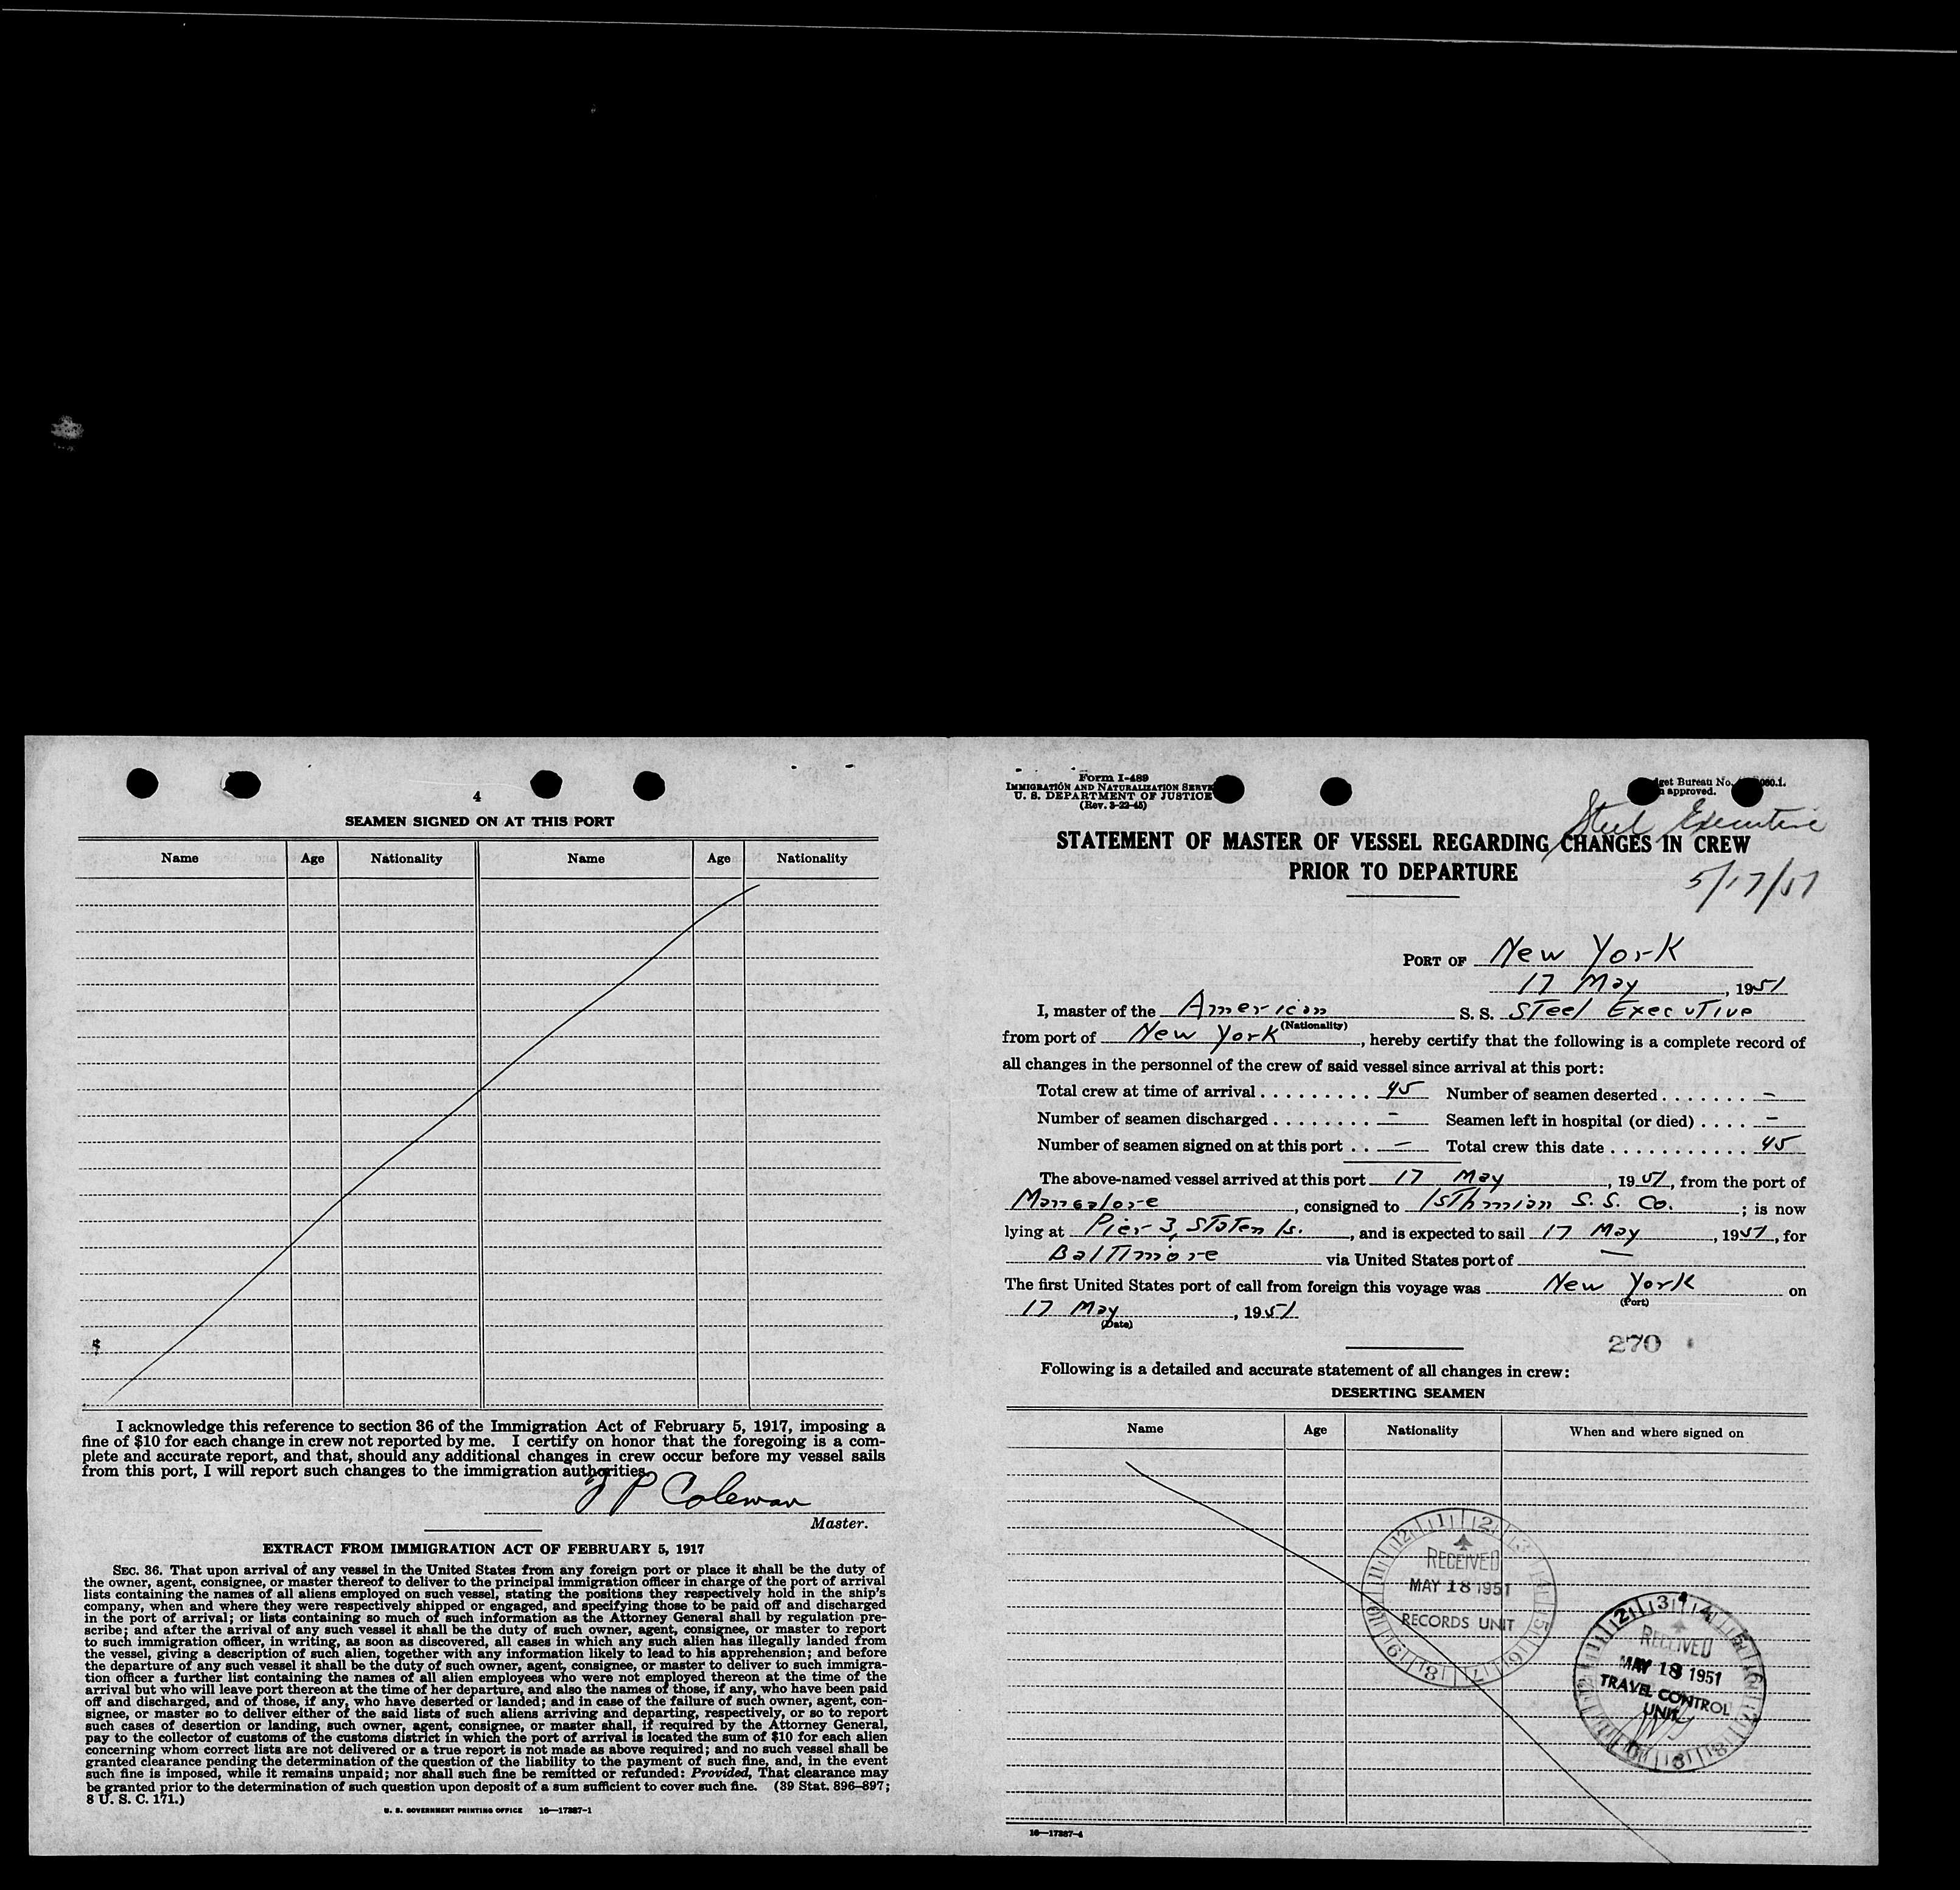 4
SEAMEN SIGNED ON AT THIS PORT
Name Age Nationality Name Age Nationality
I acknowledge this reference to section 36 of the Immigration Act of February 5, 1917, imposing a
fine of $10 for each change in crew not reported by me. I certify on honor that the foregoing is a com-
plete and accurate report, and that, should any additional changes in crew occur before my vessel sails
from this port, I will report such changes to the immigration authorities.
J P Coleman
Master.
EXTRACT FROM IMMIGRATION ACT OF FEBRUARY 5, 1917
SEC. 36. That upon arrival of any vessel in the United States from any foreign port or place it shall be the duty of
the owner, agent, consignee, or master thereof to deliver to the principal immigration officer in charge of the port of arrival
lists containing the names of all aliens employed on such vessel, stating the positions they respectively hold in the ship's
company, when and where they were respectively shipped or engaged, and specifying those to be paid off and discharged
in the port of arrival; or lists containing so much of such information as the Attorney General shall by regulation pre-
scribe; and after the arrival of any such vessel it shall be the duty of such owner, agent, consignee, or master to report
to such immigration officer, in writing, as soon as discovered, all cases in which any such alien has illegally landed from
the vessel, giving a description of such alien, together with any information likely to lead to his apprehension; and before
the departure of any such vessel it shall be the duty of such owner, agent, consignee, or master to deliver to such immigra-
tion officer a further list containing the names of all alien employees who were not employed thereon at the time of the
arrival but who will leave port thereon at the time of her departure, and also the names of those, if any, who have been paid
off and discharged, and of those, if any, who have deserted or landed; and in case of the failure of such owner, agent, con-
signee, or master so to deliver either of the said lists of such aliens arriving and departing, respectively, or so to report
such cases of desertion or landing, such owner, agent, consignee, or master shall, if required by the Attorney General,
pay to the collector of customs of the customs district in which the port of arrival is located the sum of $10 for each alien
concerning whom correct lists are not delivered or a true report is not made as above required; and no such vessel shall be
granted clearance pending the determination of the question of the liability to the payment of such fine, and, in the event
such fine is imposed, while it remains unpaid; nor shall such fine be remitted or refunded: Provided, That clearance may
be granted prior to the determination of such question upon deposit of a sum sufficient to cover such fine. (39 Stat. 896–897;
8 U. S. C. 171.)
U. S. GOVERNMENT PRINTING OFFICE 16—17387-1
Form I-489
IMMIGRATION AND NATURALIZATION SERVI
U. S. DEPARTMENT OF JUSTICE
(Rev. 3-22-45)
get Bureau No.
approved.
Steel Executive
STATEMENT OF MASTER OF VESSEL REGARDING CHANGES IN CREW
PRIOR TO DEPARTURE
5/17/51
PORT OF New York
17 May, 1951
I, master of the American S. S. Steel Executive
(Nationality)
from port of New York, hereby certify that the following is a complete record of
all changes in the personnel of the crew of said vessel since arrival at this port:
Total crew at time of arrival . . . . . . . . . 45 Number of seamen deserted . . . . . . . –
Number of seamen discharged . . . . . . . . – Seamen left in hospital (or died) . . . . –
Number of seamen signed on at this port . . – Total crew this date . . . . . . . . . . . 45
The above-named vessel arrived at this port 17 May, 1951, from the port of
Mangalore, consigned to Isthmian S. S. Co.; is now
lying at Pier 3, Staten Is., and is expected to sail 17 May, 1951, for
Baltimore via United States port of —
The first United States port of call from foreign this voyage was New York on
(Port)
17 May, 1951
(Date)
270
Following is a detailed and accurate statement of all changes in crew:
DESERTING SEAMEN
Name Age Nationality When and where signed on
RECEIVED
MAY 18 1951
RECORDS UNIT
RECEIVED
MAY 18 1951
TRAVEL CONTROL
UNIT
16—17387-4